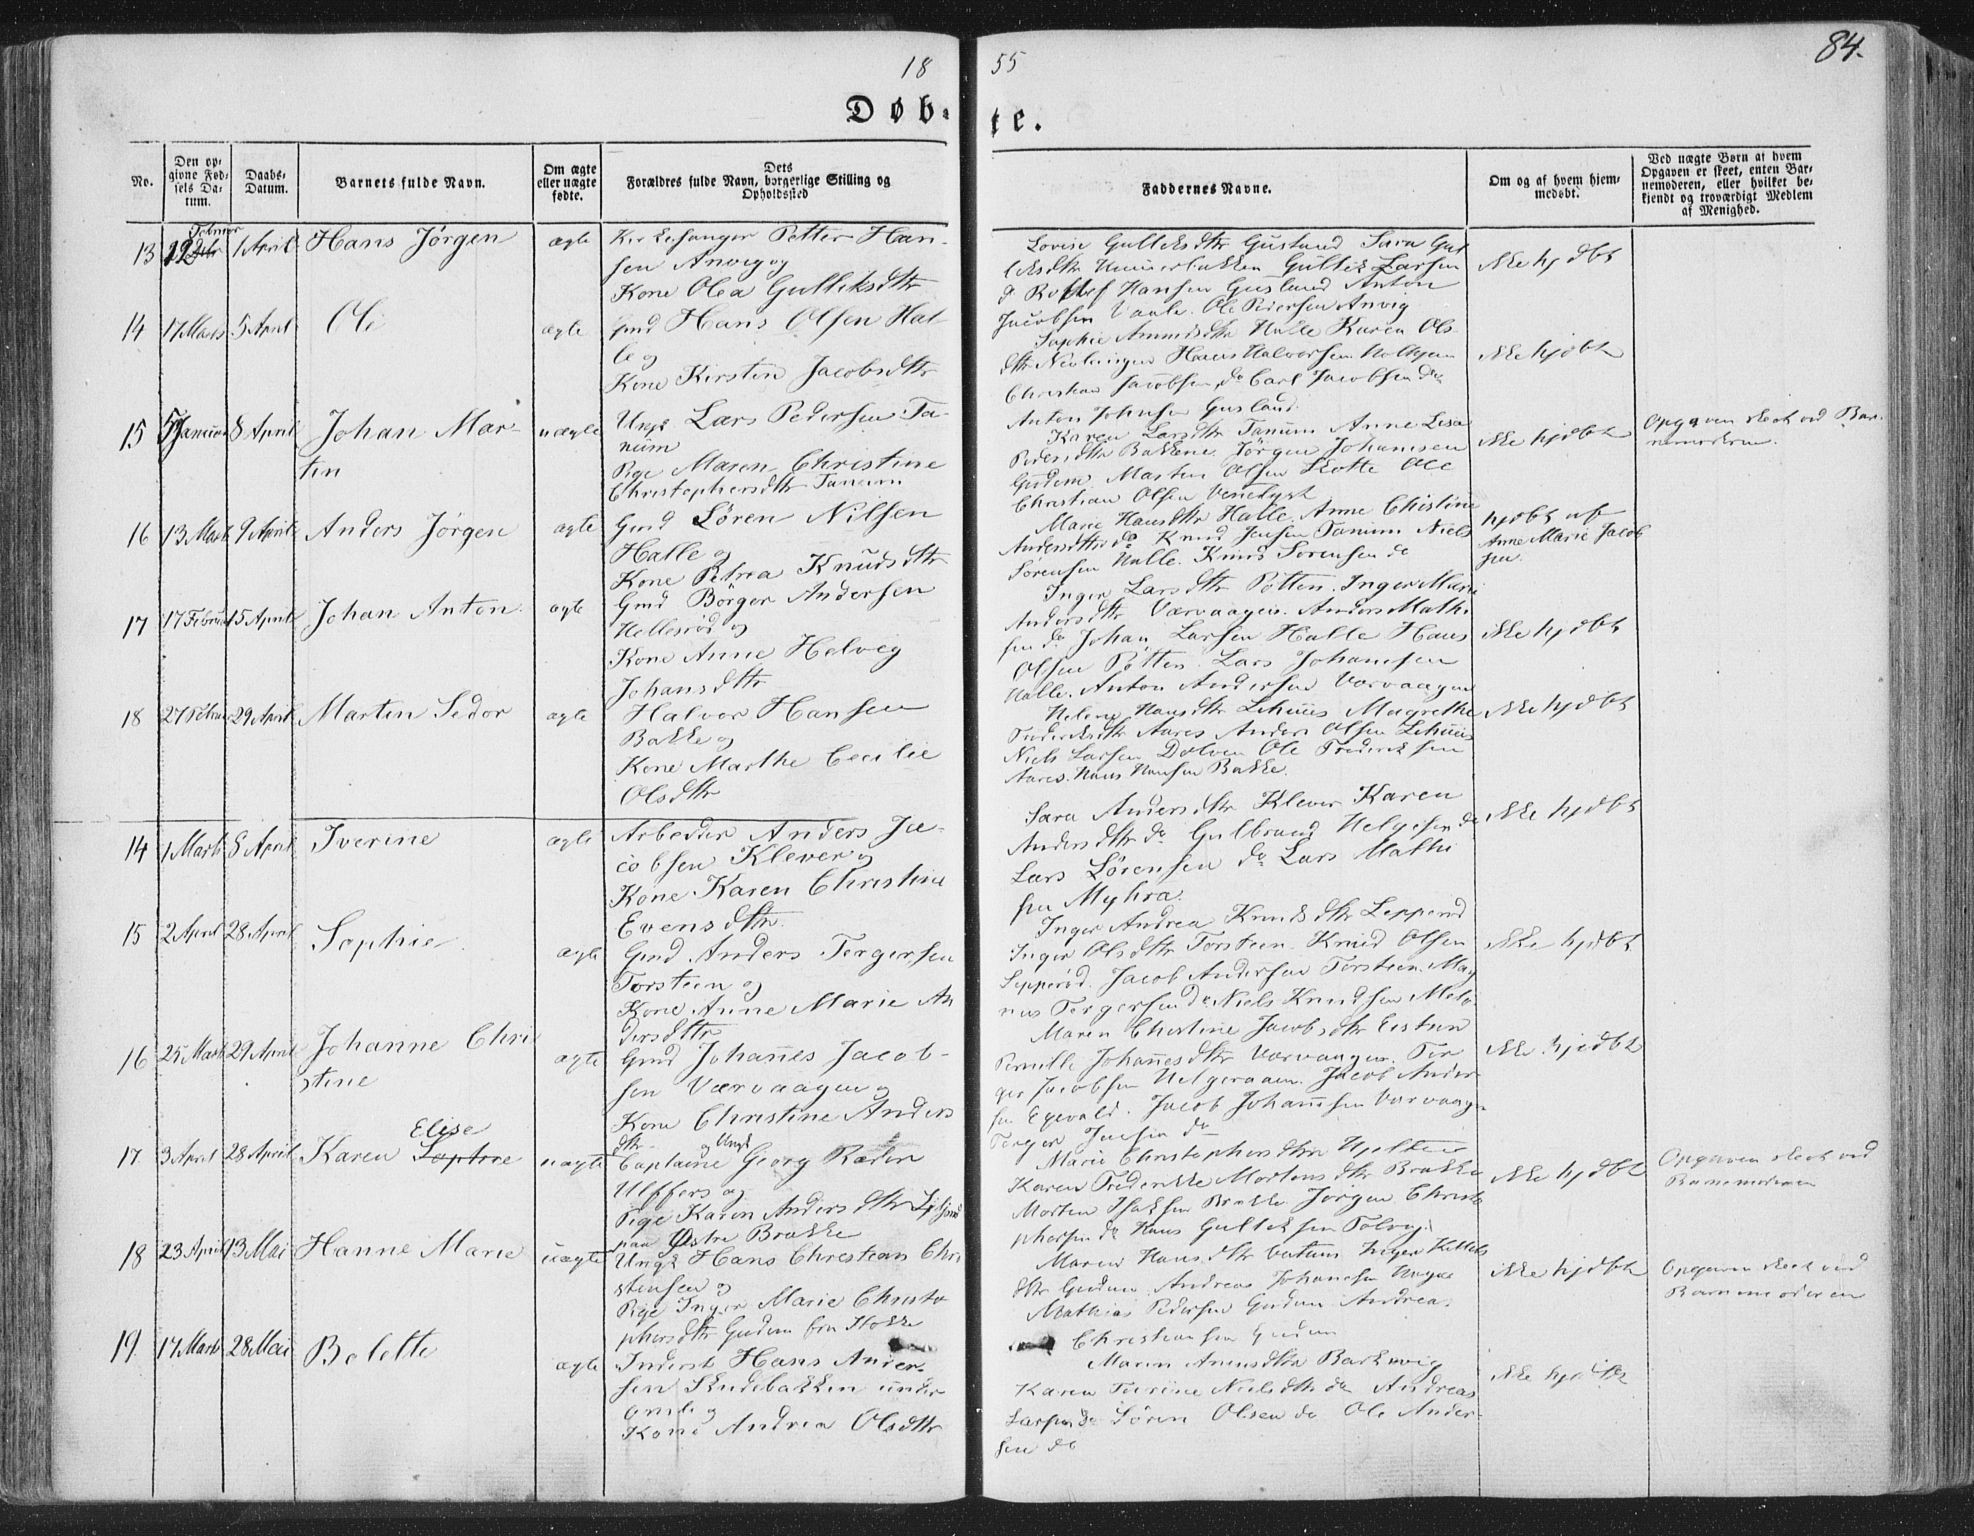 18 55
84.
Døb-
te.
No.
Den op-
givne Fød-
sels Da-
tum.
Daabs-
Datum.
Barnets fulde Navn.
Om ægte
eller uægte
fødte.
Dets
Forældres fulde Navn, borgerlige Stilling og
Opholdssted
Faddernes Navne.
Om og af hvem hjem-
medøbt.
Ved uægte Børn af hvem
Opgaven er skeet, enten Bar-
nemoderen, eller hvilket be-
kjendt og troværdigt Medlem
af Menighed.
13 1 April Hans Jørgen ægte Kirkesanger Petter Han-
sen Anvig og
Kone Olea Gulliksdtr
Lovise Gulleksdtr Gusland Sara Gul
leksdtr Gullik Larsen
Hansen Gusland Anton
Jacobsen Ole Pedersen Anvig
ikke hjdbt
14 17 Marts 5 April Ole ægte Gmd Hans Olsen Hal-
le og
Kone Kirsten Jacobsdtr
Sophie Halle Karen Ols
dtr Hans Halvorsen
Christian Jacobsen do Carl Jacobsen do
Anton Johnsen Gusland
ikke hjdbt
15 5 Januar 8 April Johan Mar-
tin
uægte Ungk Lars Pedersen Ta-
num
Pige Maren Christine
Christophersdtr Tanum
Karen Larsdtr Tanum Anne Lisa
Pedersdtr Bakkene Jørgen Johannsen
Gudem Morten Olsen Ole
Christian Olsen
ikke hjdbt
Opgaven skeet ved Bar-
nemoderen.
16 13 Mart 9 April Anders Jørgen ægte Gmd Søren Nilsen
Halle og
Kone Petrea Knudsdtr
Marie Hansdtr Halle. Anne Christine
Andersdtr do Knud Jensen Tanum Niels
Sørensen Halle. Knud Sørensen do
hjdbt af
Anne Marie Jacob
sen.
17 17 Februar 15 April Johan Anton. ægte Gmd Börger Andersen
Hellesrød og
Kone Anne Helveg
Johansdtr
Inger Larsdtr Pøtten. Inger Marie
Andersdtr Varvaagen. Anders Mathi
sen do Johan Larsen Halle Hans
Olsen Pøtten. Lars Johannsen
Halle. Anton Andersen Varvaagen
ikke hjdbt
18 27 Februar 29 April Martin Sedor ægte Halvor Hansen
Bakke og
Kone Marthe Cecilie
Olsdtr
Helene Hansdtr Magrethe
Frederiksdtr Aares Anders Olsen
Niels Larsen Dolven Ole Frederiksen
Aares. Hans Hansen Bakke.
ikke hjdbt
14 1 Mart 8 April Iverine ægte Arbeider Anders Ja-
cobsen Klever og
Kone Karen Christine
Evensdtr.
Sara Andersdtr Klever Karen
Andersdtr do Gulbrand Helgesen do
Lars Sörensen do Lars Mathi
sen Myhra.
ikke hjdbt
15 2 April 28 April Sophie. ægte Gmd Anders Tergersen
Torsteen og
Kone Anne Marie An
dersdtr
Inger Andrea Knudsdtr
Inger Olsdtr Torsteen. Knud Olsen
Jacob Andersen Torsteen. Mag
nus Tergersen do Niels Knudsen
ikke hjdbt
16 25 Mart 29 April Johanne Chri
stine
ægte Gmd Johannes Jacob-
sen Værvaagen og
Kone Christine Anders
dtr
Maren Christine Jacobsdtr
Pernille Johannesdtr Varvaagen. Ter
ger Jacobsen Helgeraaen. Jacob Ander-
sen Egevald. Jacob Johannsen Varvaagen
Terger do
ikke hjdbt
17 3 April 28 April Karen Elise Sophie uægte Captaine og Ungk Georg Ræder
Ulffers og
Pige Karen Andersdtr
paa Østre Brakke
Marie Christophersdtr
Karen Frederikke Mortensdtr Brakke
Morten Isaksen Brakke Jørgen Christo
phersen do Hans Gulleksen
ikke hjdbt
Opgaven skeet ved
Barnemoderen
18 23 April 13 Mai Hanne Marie uægte Ungk Hans Christian Chri
stensen og
Pige Inger Marie Christo
phersdtr Gudem
Maren Hansdtr Inger
dtr Gudem Andreas Johannsen
Mathias Pedersen Gudem Andrea.
Christiansen Gudem
ikke hjdbt
Opgaven skeet ved
Barnemoderen
19. 17 Mart 28 Mai Bolette ægte Inderst Hans Ander-
sen Skudebakken under
og
Kone Andrea Olsdtr
Maren Barkevig
Karen Nielsdtr do Andreas
Larsen do Søren Olsen do Ole Ander-
sen do